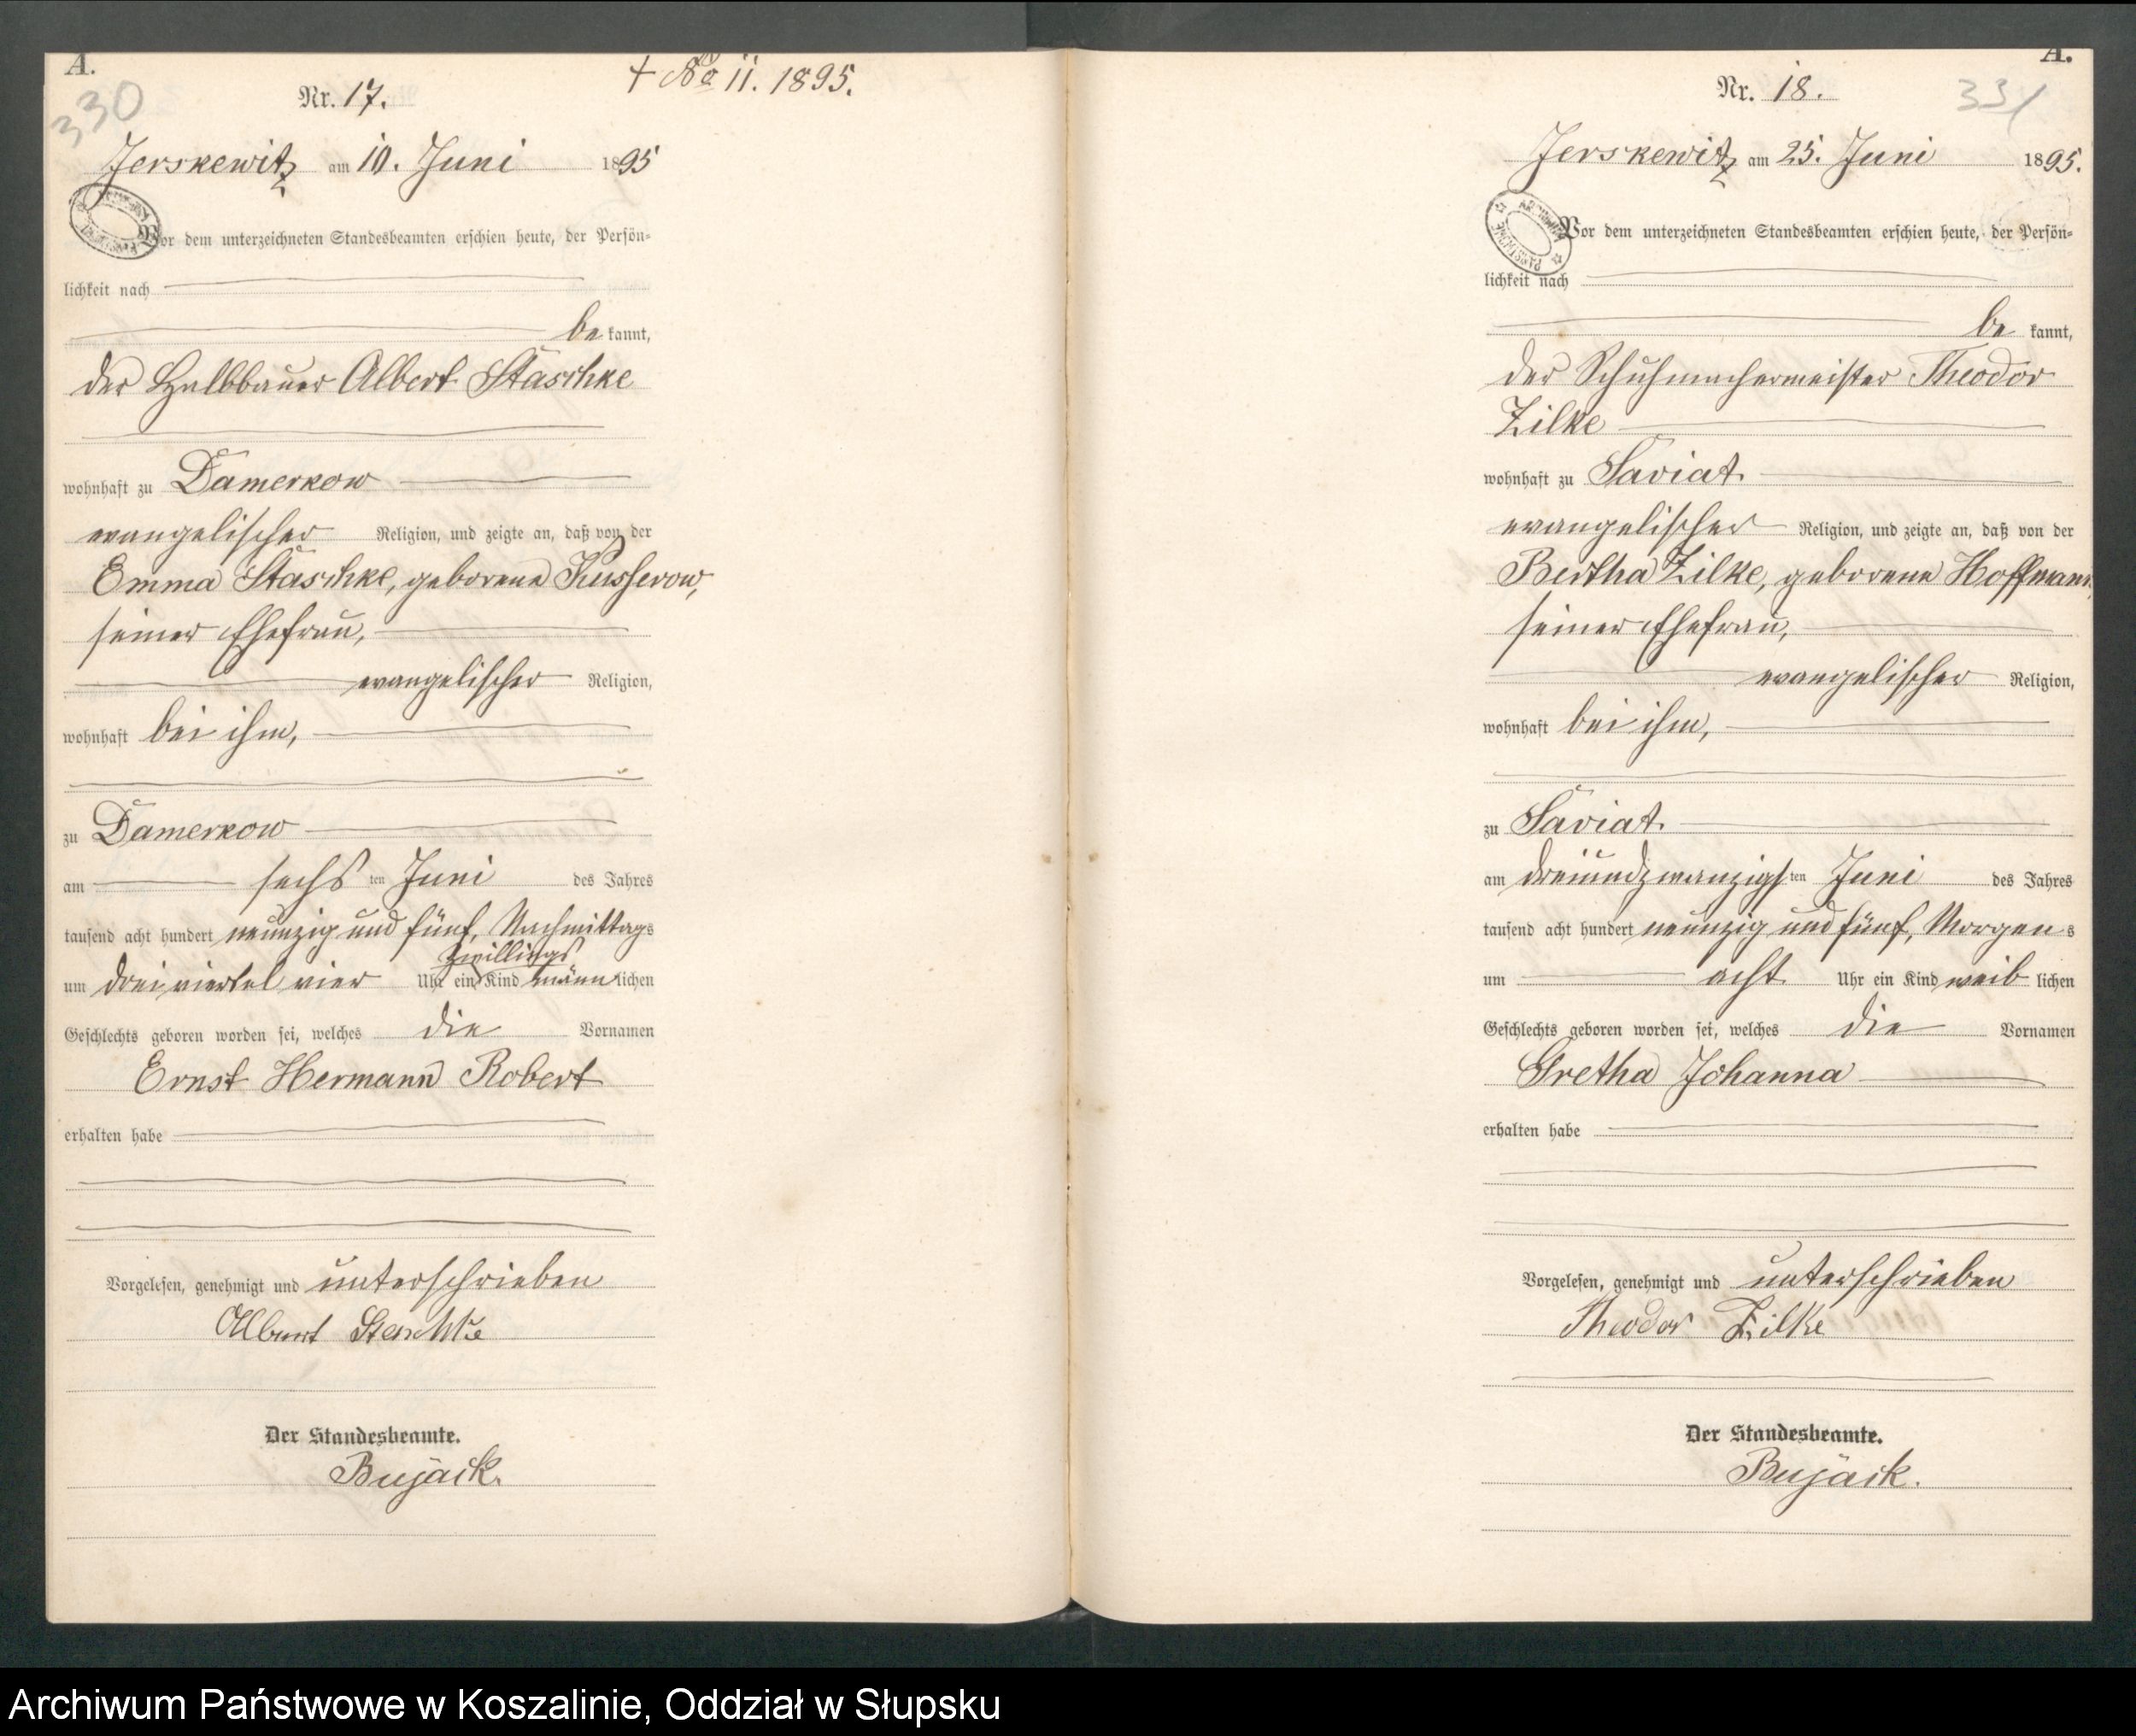 A.
330
Nr. 17.
+ No 11. 1895.
Jerskewitz am 10. Juni 1895
Vor dem unterzeichneten Standesbeamten erschien heute, der Persön-
lichkeit nach
be kannt,
der Halbbauer Albert Staschke
wohnhaft zu Damerkow
evangelischer Religion, und zeigte an, daß von der
Emma Staschke, geborene Kusserow,
seiner Ehefrau,
evangelischer Religion,
wohnhaft bei ihm,
zu Damerkow
am sechs ten Juni des Jahres
tausend acht hundert neunzig und fünf, Nachmittags
Zwillings
um drei viertel vier Uhr ein Kind männlichen
Geschlechts geboren worden sei, welches die Vornamen
Ernst Hermann Robert
erhalten habe
Vorgelesen, genehmigt und unterschrieben
Albert Staschke
Der Standesbeamte.
Bujack.
A.
331
Nr. 18.
Jerskewitz am 25. Juni 1895.
Vor dem unterzeichneten Standesbeamten erschien heute, der Persön-
lichkeit nach
be kannt,
der Schuhmachermeister Theodor
Zilke
wohnhaft zu Saviat
evangelischer Religion, und zeigte an, daß von der
Bertha Zilke, geborene Hoffmann,
seiner Ehefrau,
evangelischer Religion,
wohnhaft bei ihm,
zu Saviat
am dreiundzwanzigsten Juni des Jahres
tausend acht hundert neunzig und fünf, Morgens
um acht Uhr ein Kind weib lichen
Geschlechts geboren worden sei, welches die Vornamen
Gretha Johanna
erhalten habe
Vorgelesen, genehmigt und unterschrieben
Theodor Zilke
Der Standesbeamte.
Bujack.
Archiwum Państwowe w Koszalinie, Oddział w Słupsku